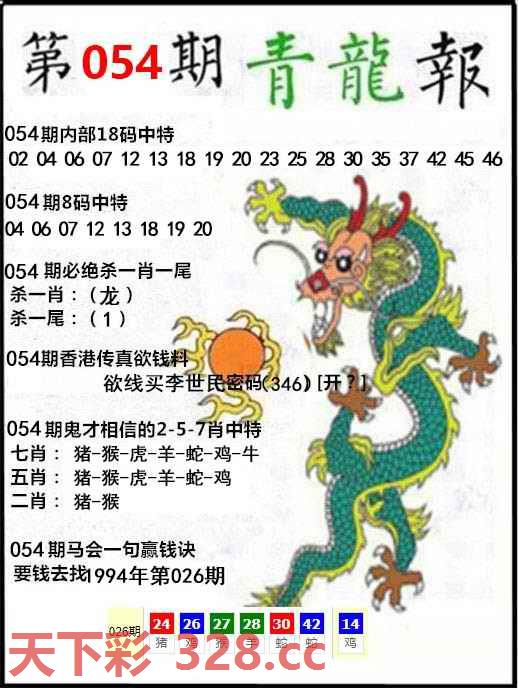 第054期 青龍報
054期内部18码中特
02 04 06 07 12 13 18 19 20 23 25 28 30 35 37 42 45 46
054期8码中特
04 06 07 12 13 18 19 20
054期必绝杀一肖一尾
杀一肖:(龙)
杀一尾:(1)
054期香港传真欲钱料
欲线买李世民密码(346)[开?]
054期鬼才相信的2-5-7肖中特
七肖:猪-猴-虎-羊-蛇-鸡-牛
五肖:猪-猴-虎-羊-蛇-鸡
二肖:猪-猴
054期马会一句赢钱诀
要钱去找1994年第026期
026期 24 26 27 28 30 42 14
猪 鸡 猴 羊 蛇 蛇 鸡
天下彩 328.cc